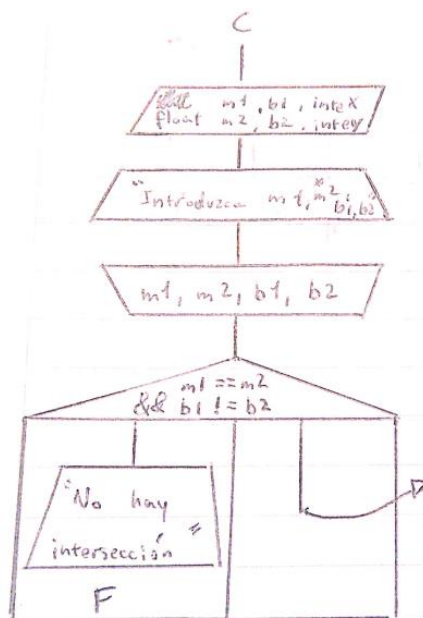 C
m1, b1, intex
float m2, b2, intey
"Introduzca m1, m2
b1, b2"
m1, m2, b1, b2
m1 == m2
&& b1 != b2
"No hay
intersección"
F